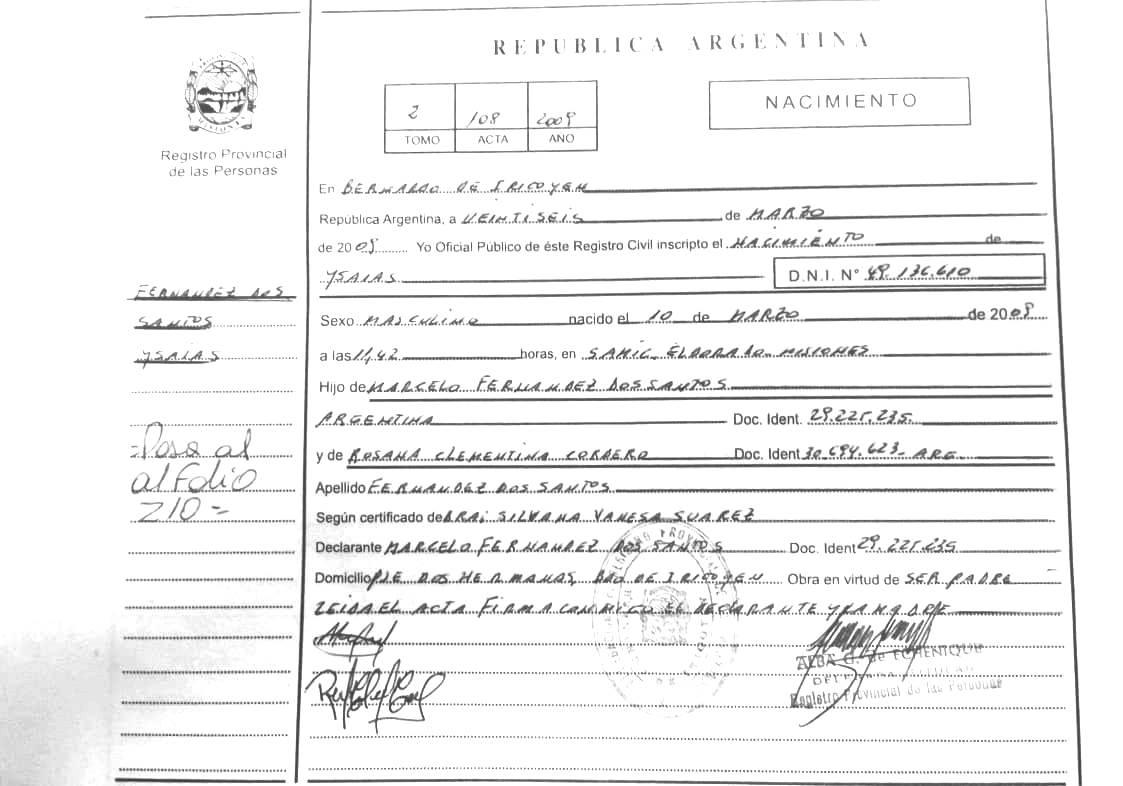 REPUBLICA ARGENTINA
NACIMIENTO
2 108 2009
TOMO ACTA AÑO
Registro Provincial
de las Personas
En BERNARDO DE IRIGOYEN
República Argentina, a VEINTISEIS de MARZO
de 2009 Yo Oficial Público de éste Registro Civil inscripto el NACIMIENTO de
YSAIAS D.N.I. N° 49.136.610
FERNANDEZ DOS
SANTOS
YSAIAS
Sexo MASCULINO nacido el 10 de MARZO de 2009
a las 11,42 horas, en SAMIC ELDORADO MISIONES
Hijo de MARCELO FERNANDEZ DOS SANTOS
ARGENTINA Doc. Ident. 29.225.235
y de ROSANA CLEMENTINA CORRERO Doc. Ident 30.694.623 - ARG.
Apellido FERNANDEZ DOS SANTOS
Según certificado de DRA; SILVANA VANESA SUAREZ
Declarante MARCELO FERNANDEZ DOS SANTOS Doc. Ident 29.225.235
Domicilio PJE DOS HERMANAS, BDO DE IRIGOYEN Obra en virtud de SER PADRE
LEIDA EL ACTA FIRMA CONMIGO EL DECLARANTE Y LA MADRE
= Pase al
al Folio
210 =
ALBA G. de ECHENIQUE
Registro Provincial de las Personas